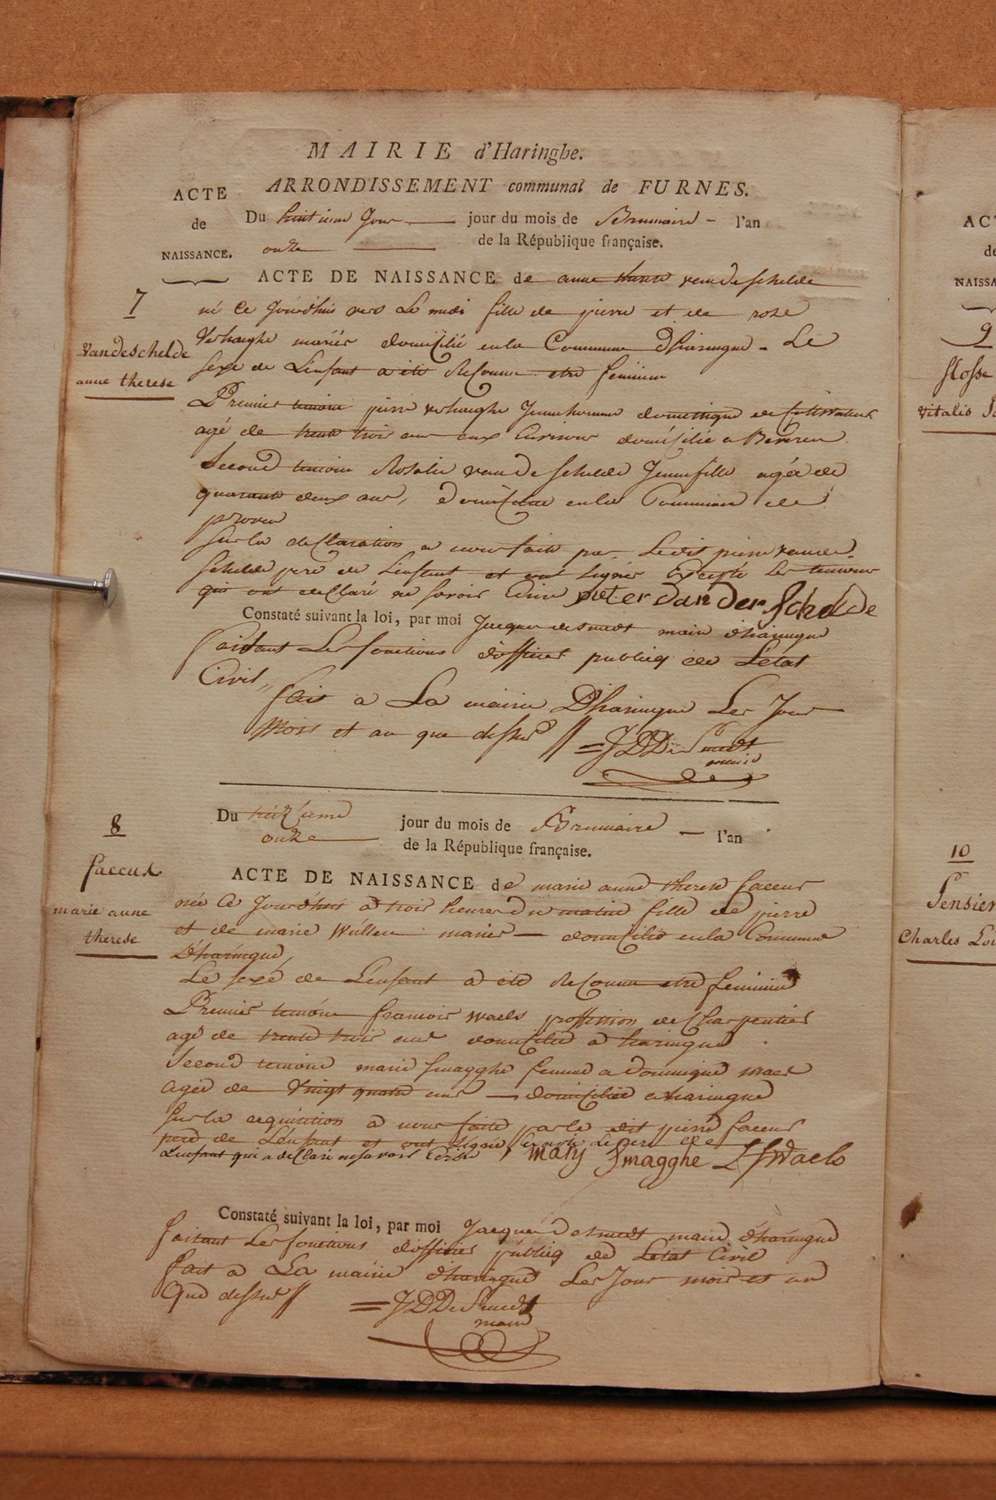 MAIRIE d'Haringhe.
ARRONDISSEMENT communal de FURNES.
ACTE
de
NAISSANCE.
Du huitieme Jour jour du mois de Brumaire - l'an
onze de la République française.
ACTE DE NAISSANCE de anne therese vandeschelde
7
Vandeschelde
anne therese
né Ce Jourdhui vers Le midi fille de pierre et de rose
Verhaeghe mariés domicilié en la Commune dharingue - Le
sexe de Lenfant a été Reconnu etre feminin
Premier temoin pierre verhaeghe Jeune homme de
agé de trente trois ans domicilié a Beveren
Second temoin Rosalie vandeschelde Jeune fille agée de
quarante deux ans, domicilié en la Commune de
proven
Sur la declaration a nous faite par Ledit pierre vande-
schelde pere de Lenfant et ont signés Excepté Les temoins
qui ont declaré ne savoir Ecrire pieter van der Schelde
Constaté suivant la loi, par moi Jacques desmedt maire dharingue
faisant Les fonctions dofficier publicq de Letat
Civil,,
fait a La mairie Dharingue Les Jour
Mois et an que dessus // = J D De Smedt
maire
8
faccux
marie anne
therese
Du treizieme jour du mois de Brumaire - l'an
onze de la République française.
ACTE DE NAISSANCE de marie anne therese faccux
née Ce Jourdhui a trois heures du matin fille de pierre
et de marie Wullem mariés - domicilié en la Commune
Dharingue,
Le sexe de Lenfant a été Reconnu etre feminin
Premier temoin francois waels proffession de Charpentier
agé de trente trois ans domicilié a haringue
Second temoin marie smagghe femme a dominique waels
agée de vingt quatre ans - domiciliée a haringue
Sur la requisition a nous faite par le dit pierre faccux
pere de Lenfant et ont signé Excepté Le pere de
Lenfant qui a declaré ne savoir Ecrire, marij Smagghe L f Waels
Constaté suivant la loi, par moi Jacques Desmedt maire dharingue
faisant Les fonctions dofficier publicq de Letat Civil
fait a La mairie dharingue Les Jour mois et an
Que dessus // = J D De Smedt
maire
ACT
de
NAISSA
9
flosse
vitalis
10
Pensier
Charles Lou